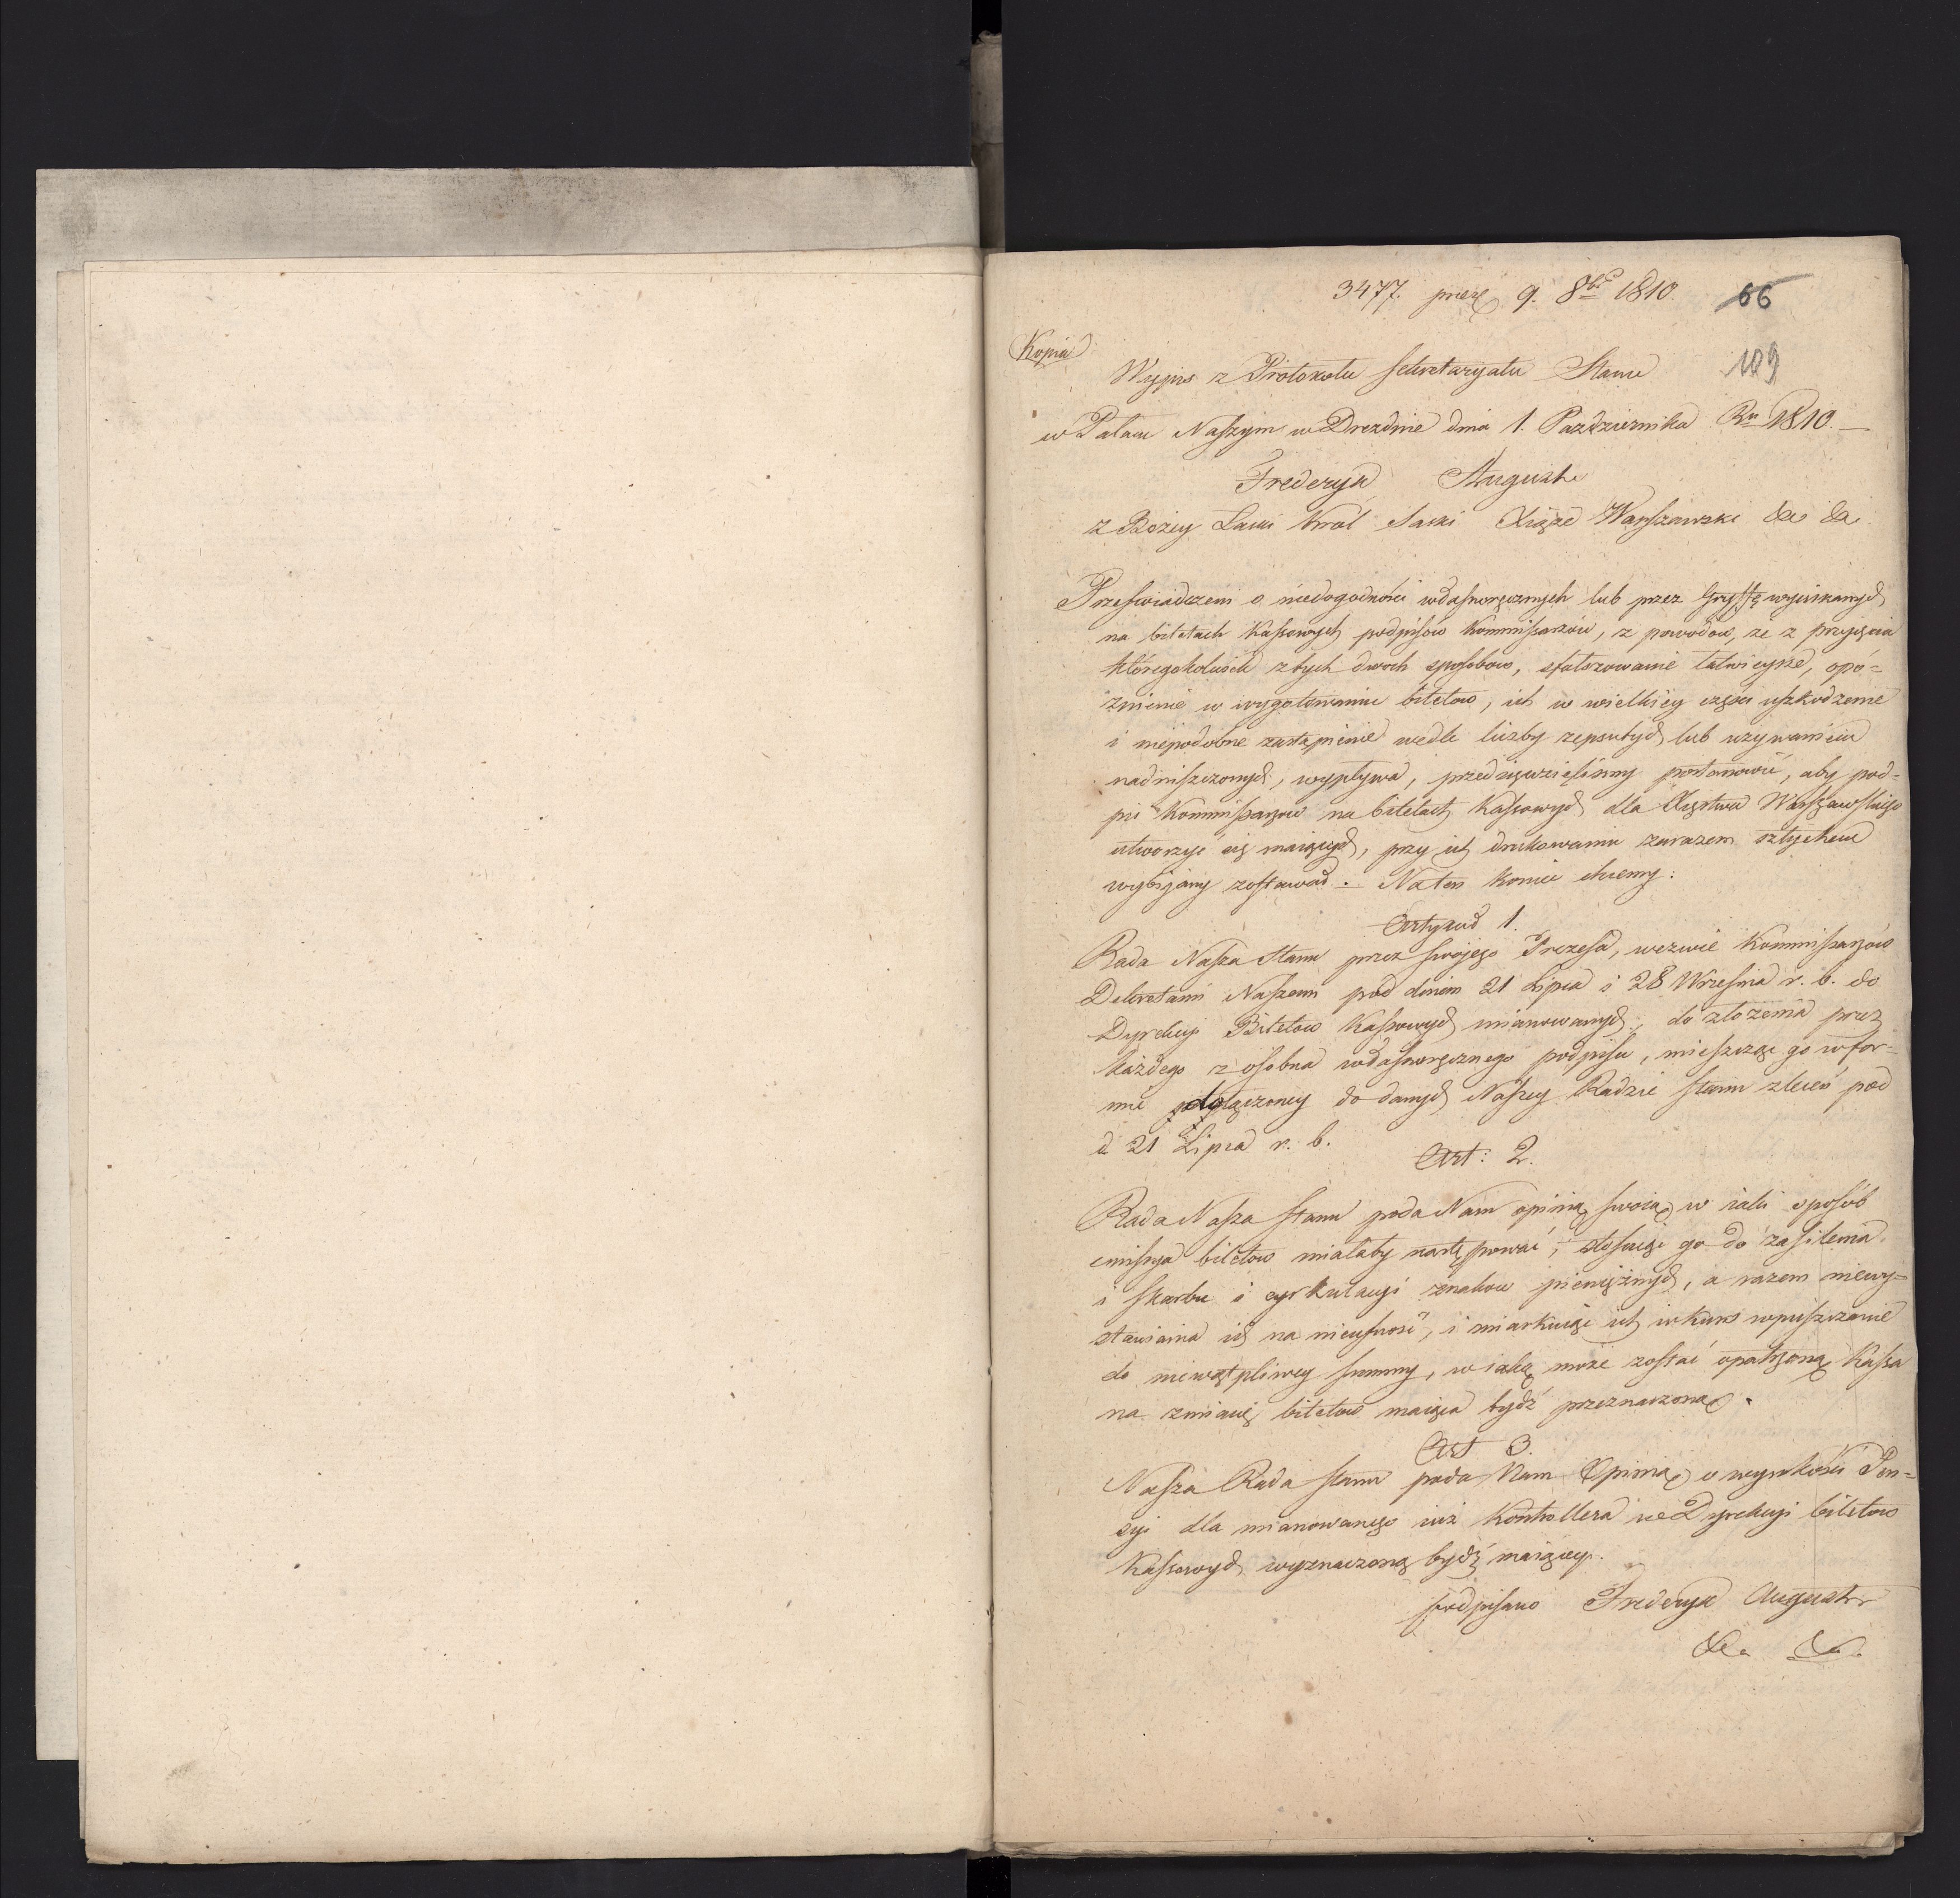 3477. prez 9. 8br 1810. 66
Kopia 109
Wypis z Protokołu Sekretaryatu Stanu
w Pałacu Naszym w Dreznie dnia 1. Pazdziernika Ru 1810. —
Frederyk August
z Bożey Łaski Król Saski Xiąże Warszawski &c &c
Przeswiadczeni o niedogodności własnoręcznych lub przez Gryffę wyciskanych
na biletach Kassowych podpisów Kommissarzów, z powodów, że z przyięcia
któregokolwiek z tych dwóch sposobów, sfałszowanie łatwieysze, opó=
źnienie w wygotowaniu biletów, ich w wielkiey części uszkodzenie
i niepodobne zastąpienie wedle liczby zepsutych lub używaniem
nadniszczonych, wypływa, przedsięwzielismy postanowić, aby pod=
pis Kommissarzów na biletach Kassowych dla Xięstwa Warszawskiego
utworzyć się maiących, przy ich drukowaniu zarazem sztychem
wybijany zostawał. Na ten koniec chcemy:
Artykuł 1.
Rada Nasza Stanu przez swojego Prezesa, wezwie Kommissarzów
Dekretami Naszemi pod dniem 21 Lipca i 28 Września r. b. do
Dyrekcyi Biletów Kassowych mianowanych, do złożenia przez
każdego z osobna własnoręcznego podpisu, mieszcząc go w for=
mie dołączoney do danych Naszey Radzie Stanu zleceń pod
d. 21 Lipca r. b.
Art: 2.
Rada Nasza Stanu poda Nam opinią swoią w iaki sposób
emissya biletów miałaby następować, stosuiąc go do zasilenia
i skarbu i cyrkulacyi znaków pieniężnych, a razem niewy=
stawiania ich na nieufność, i miarkuiąc ich w kurs wpuszczanie
do niewątpliwey summy, w iaką może zostać opatrzoną Kassa
na zmianę biletów maiąca bydź przeznaczoną.
Art 3.
Nasza Rada Stanu poda Nam Opinią o wysokości Pen=
syi dla mianowanego iuż Kontrollera w Dyrekcyi biletów
Kassowych wyznaczoną bydź maiącey.
podpisano Frederyk August
&c. &c.